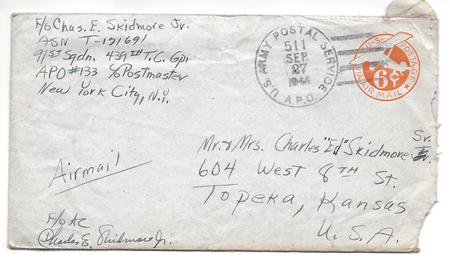 F/o Chas. E. Skidmore Jr.
ASN T-121691
91st Sqdn. 439TH T.C. Gp.
APO #133 c/o Postmaster
New York City, N.Y.
U.S. ARMY POSTAL SERVICE
511
SEP
27
1944
A.P.O.
U.S. POSTAGE
6¢
VIA AIR MAIL
Mr. & Mrs. Charles "Ed" Skidmore Sr.
604 West 8TH St.
Topeka, Kansas
U.S.A.
Airmail
F/o AC
Charles E. Skidmore Jr.